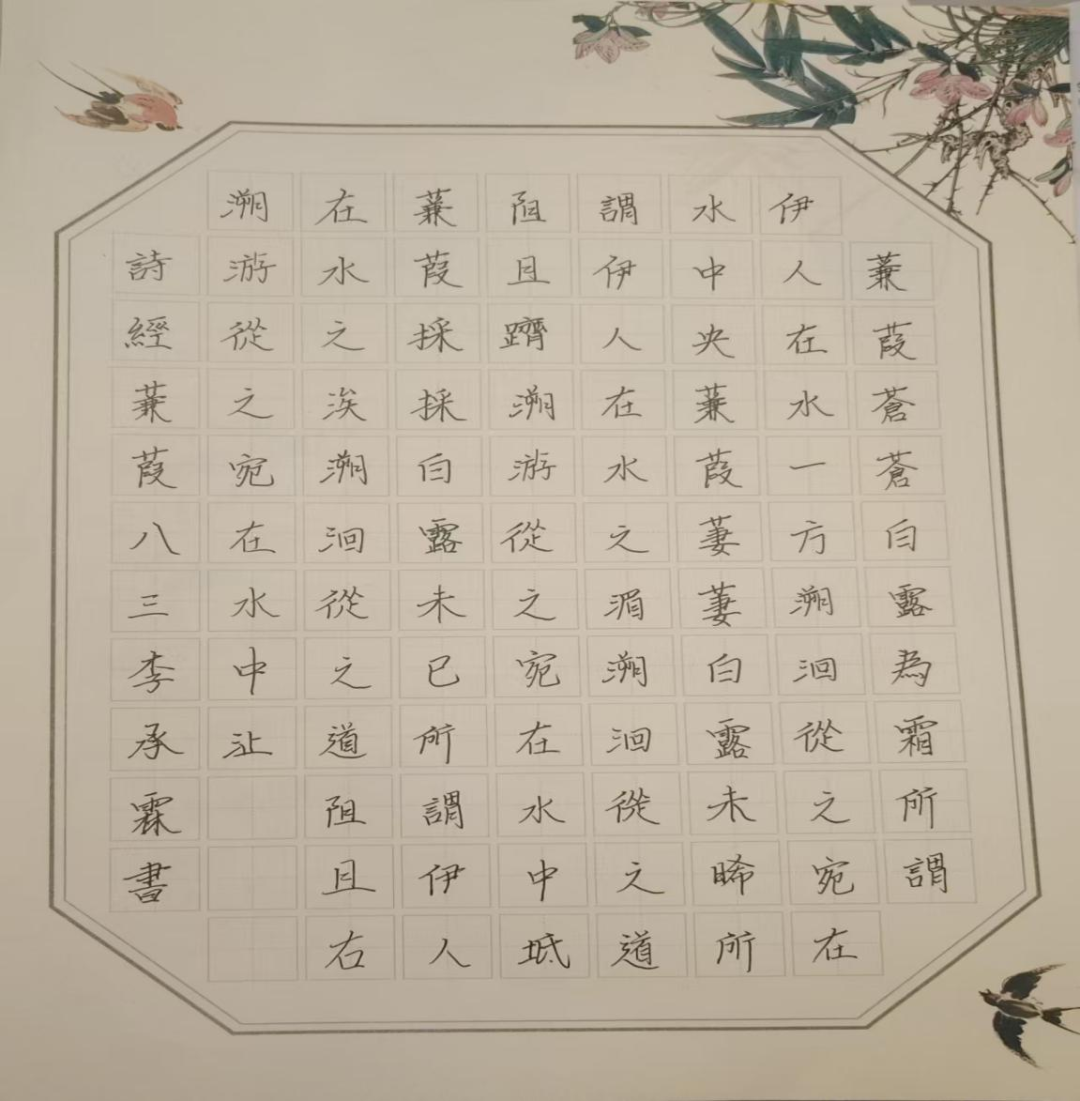 蒹葭蒼蒼白露為霜所謂
伊人在水一方溯洄從之宛在
水中央蒹葭萋萋白露未晞所
謂伊人在水之湄溯洄從之道
阻且躋溯游從之宛在水中坻
蒹葭採採白露未已所謂伊人
在水之涘溯洄從之道阻且右
溯游從之宛在水中沚
詩經蒹葭八三李承霖書